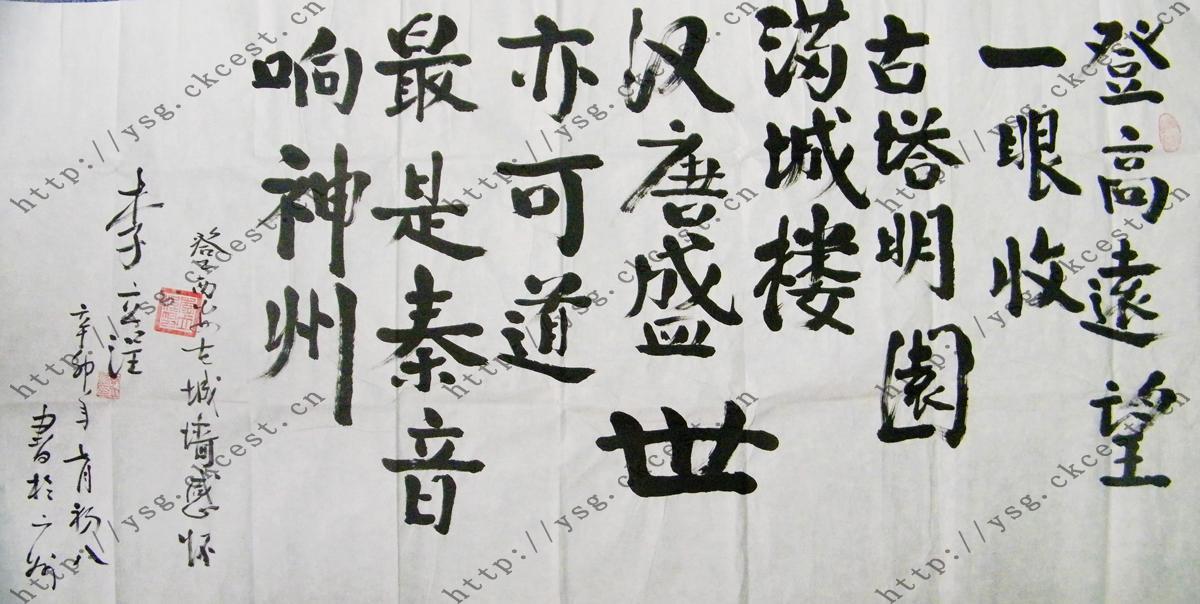 登高遠望
一眼收
古塔明園
满城楼
汉唐盛世
亦可道
最是秦音
响神州
登西安古城墙感怀
李
辛卯年 月初八
書於广州
http://ysg.ckcest.cn
http://ysg.ckcest.cn
http://ysg.ckcest.cn
http://ysg.ckcest.cn
http://ysg.ckcest.cn
http://ysg.ckcest.cn
http://ysg.ckcest.cn
http://ysg.ckcest.cn
http://ysg.ckcest.cn